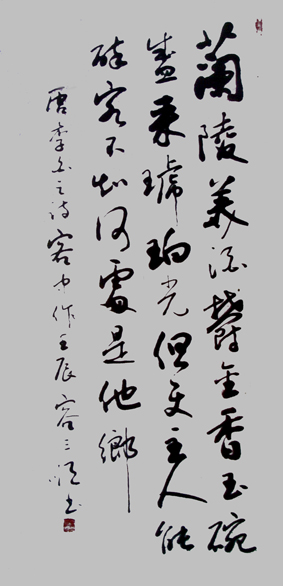 蘭陵美酒鬱金香玉碗
盛来琥珀光但使主人能
醉客不知何處是他鄉
唐李白之诗客中作壬辰容三书